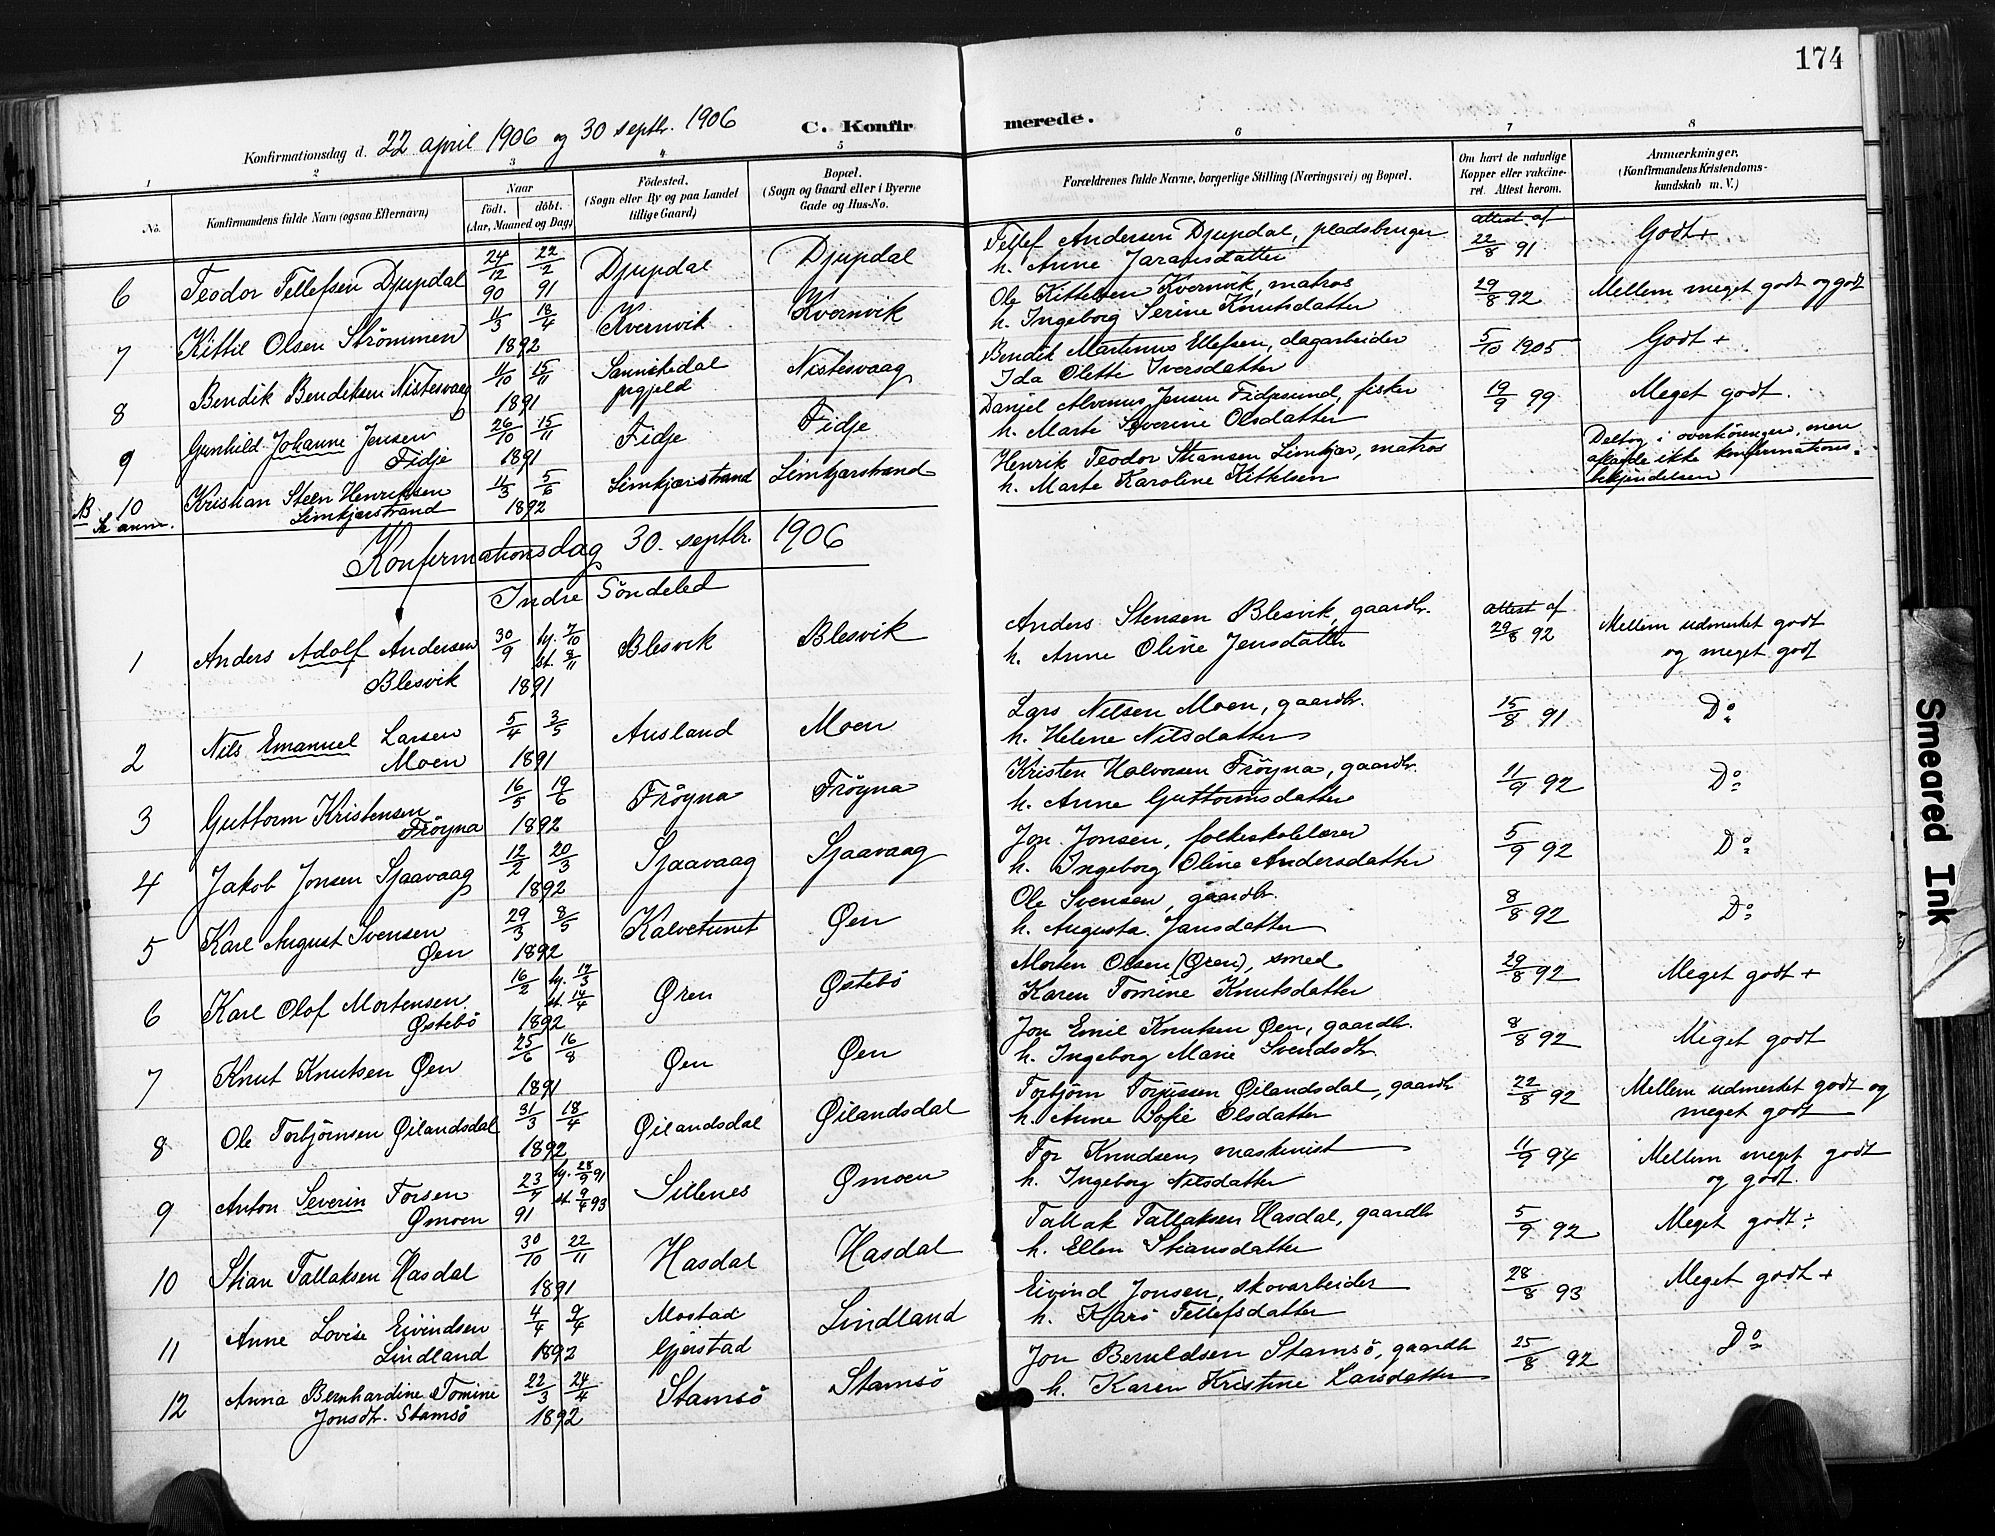 174
Konfirmationsdag d. 22 april 1906 og 30 septbr. 1906
C. Konfirmerede.
1 2 3 4 5 6 7 8
No.
Konfirmandens fulde Navn (ogsaa Efternavn)
Naar
født. døbt.
(Aar, Maaned og Dag)
Fødested.
(Sogn eller By og paa Landet
tillige Gaard)
Bopæl.
(Sogn og Gaard eller i Byerne
Gade og Hus-No.
Forældrenes fulde Navne, borgerlige Stilling (Næringsvei) og Bopæl.
Om havt de naturlige
Kopper eller vakcine-
ret. Attest herom.
Anmærkninger.
(Konfirmandens Kristendoms-
kundskab m. V.)
6 Teodor Tellefsen Djupdal 24/12 90 22/2 91 Djupdal Djupdal
Tellef Andersen Djupdal, pladsbruger
h. Anne Jaransdatter
attest af 22/8 91 Godt +
7 Kittil Olsen Strömmen 11/3 18/4 1892 Kvernvik Kvernvik
Ole Kittelsen Kvernvik, matros
h. Ingeborg Serine Knutsdatter
29/8 92 Mellem meget godt og godt
8 Bendik Bendiksen Nistesvaag 11/10 15/11 1891 Sannikedal prgjeld Nistesvaag
Bendik Martinus Ellefsen, dagarbeider
Ida Olette Iversdatter
5/10 1905 Godt +
9 Gunhild Johanne Jensen
Fidje 26/10 15/11 1891 Fidje Fidje
Daniel Alvenus Jensen Fidjesund, fisker
h. Marte Severine Olsdatter
19/9 99 Meget godt.
NB 10 Kristian Steen Henriksen
Limkjærstrand 11/3 5/6 1892 Limkjærstrand Limkjærstrand
Se anm.
Henrik Teodor Stiansen Limkjær, matros
h. Marte Karoline Kittelsen
Deltog i overhöringen, men
aflagde ikke konfirmations-
bekjendelsen
Konfirmationsdag 30. septbr. 1906
Indre Söndeled
1 Anders Adolf Andersen
Blesvik 30/9 hj. 7/10 st. 8/11 1891 Blesvik Blesvik
Anders Stensen Blesvik, gaardbr.
h. Anne Oline Jensdatter
attest af 29/8 92 Mellem udmerket godt
og meget godt
2 Nils Emanuel Larsen
Moen 5/4 3/5 1891 Ausland Moen
Lars Nilsen Moen, gaardbr.
h. Helene Nilsdatter
15/8 91 Do
3 Guttorm Kristensen
Fröyna 16/5 19/6 1892 Fröyna Fröyna
Kristen Halvorsen Fröyna, gaardbr.
h. Anne Guttormsdatter
11/9 92 Do
4 Jakob Jonsen Sjaavaag 12/2 20/3 1892 Sjaavaag Sjaavaag
Jon Jonsen, folkeskolelærer
h. Ingeborg Oline Andersdatter
5/9 92 Do
5 Karl August Svensen
Øen 29/3 8/5 1892 Kalvetunet Øen
Ole Svensen, gaardbr.
h. Augusta Jansdatter
8/8 92 Do
6 Karl Olof Mortensen
Østebö 16/2 hj. 17/3 st. 14/4 1892 Øren Østebö
Morten Olsen (Øren), smed
Karen Tomine Knutsdatter
29/8 92 Meget godt +
7 Knut Knutsen Øen 25/6 16/8 1891 Øen Øen
Jon Emil Knutsen Øen, gaardbr.
h. Ingeborg Marie Svendsdtr
8/8 92 Meget godt
8 Ole Torbjörnsen Øilandsdal 31/3 18/4 1892 Øilandsdal Øilandsdal
Torbjörn Torjussen Øilandsdal, gaardbr
h. Anne Sofie Olsdatter
22/8 92 Mellem udmerket godt og
meget godt
9 Anton Severin Torsen
Ømoen 23/7 91 hj. 28/9 91 st. 9/4 93 Sillenes Ømoen
Tor Knudsen, maskinist
h. Ingeborg Nilsdatter
11/9 94 Mellem meget godt
og godt.
10 Stian Tallaksen Hasdal 30/10 22/11 1891 Hasdal Hasdal
Tallak Tallaksen Hasdal, gaardbr
h. Ellen Stiansdatter
5/9 92 Meget godt ÷
11 Anne Lovise Eivindsen
Lindland 4/4 9/4 1892 Mostad Gjerstad Lindland
Eivind Jonsen, skovarbeider
h. Kjersi Tellefsdatter
28/8 93 Meget godt +
12 Anna Bernhardine Tomine
Jonsdtr. Stamsö 22/3 24/4 1892 Stamsö Stamsö
Jon Beruldsen Stamsö, gaardbr
h. Karen Kristine Larsdatter
25/8 92 Do
Smeared Ink